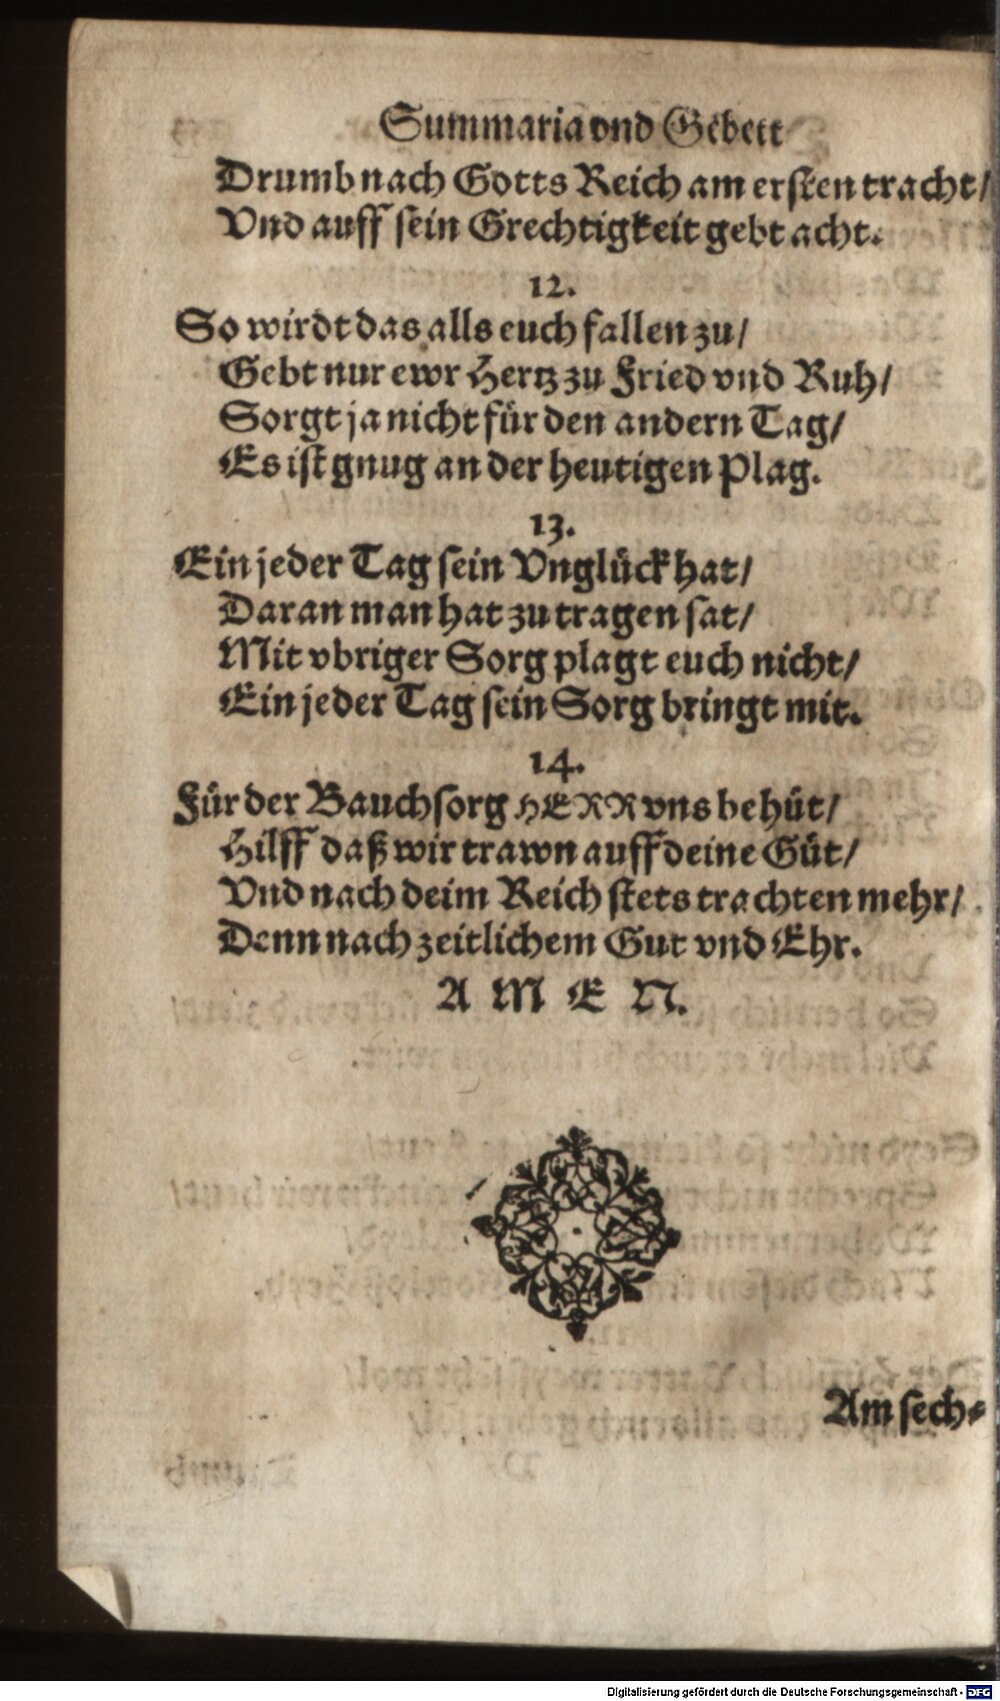 Summaria vnd Gebett
Drumb nach Gotts Reich am ersten tracht/
Vnd auff sein Grechtigkeit gebt acht.
12.
So wirdt das alls euch fallen zu/
Gebt nur ewr Hertz zu Fried vnd Ruh/
Sorgt ja nicht für den andern Tag/
Es ist gnug an der heutigen Plag.
13.
Ein jeder Tag sein Vnglück hat/
Daran man hat zu tragen sat/
Mit vbriger Sorg plagt euch nicht/
Ein jeder Tag sein Sorg bringt mit.
14.
Für der Bauchsorg HERR vns behüt/
Hilff daß wir trawn auff deine Güt/
Vnd nach deim Reich stets trachten mehr/
Denn nach zeitlichem Gut vnd Ehr.
A M E N.
Am sech-
Digitalisierung gefördert durch die Deutsche Forschungsgemeinschaft - DFG